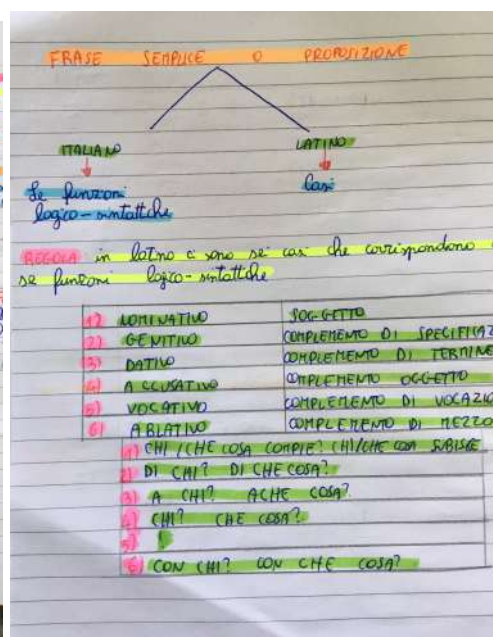 FRASE SEMPLICE O PROPOSIZIONE
ITALIANO LATINO
Le funzioni Casi
logico-sintattiche
REGOLA in latino ci sono sei casi che corrispondono a
se funzioni logico-sintattiche
1) NOMINATIVO SOGGETTO
2) GENITIVO COMPLEMENTO DI SPECIFICAZ
3) DATIVO COMPLEMENTO DI TERMINE
4) ACCUSATIVO COMPLEMENTO OGGETTO
5) VOCATIVO COMPLEMENTO DI VOCAZIO
6) ABLATIVO COMPLEMENTO DI MEZZO
1) CHI/CHE COSA COMPIE? CHI/CHE COSA SUBISCE
2) DI CHI? DI CHE COSA?
3) A CHI? A CHE COSA?
4) CHI? CHE COSA?
5) !
6) CON CHI? CON CHE COSA?